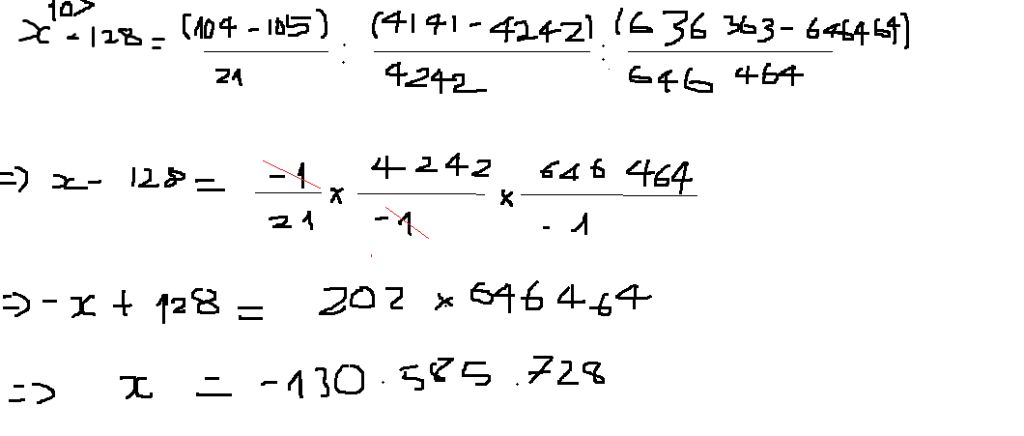 x - 128 = (104 - 105) / 21 : (4141 - 4242) / 4242 : (636 363 - 646464) / 646 464
=> x - 128 = -1 / 21 × 4242 / -1 × 646 464 / -1
=> -x + 128 = 202 × 646464
=> x = -130.585.728